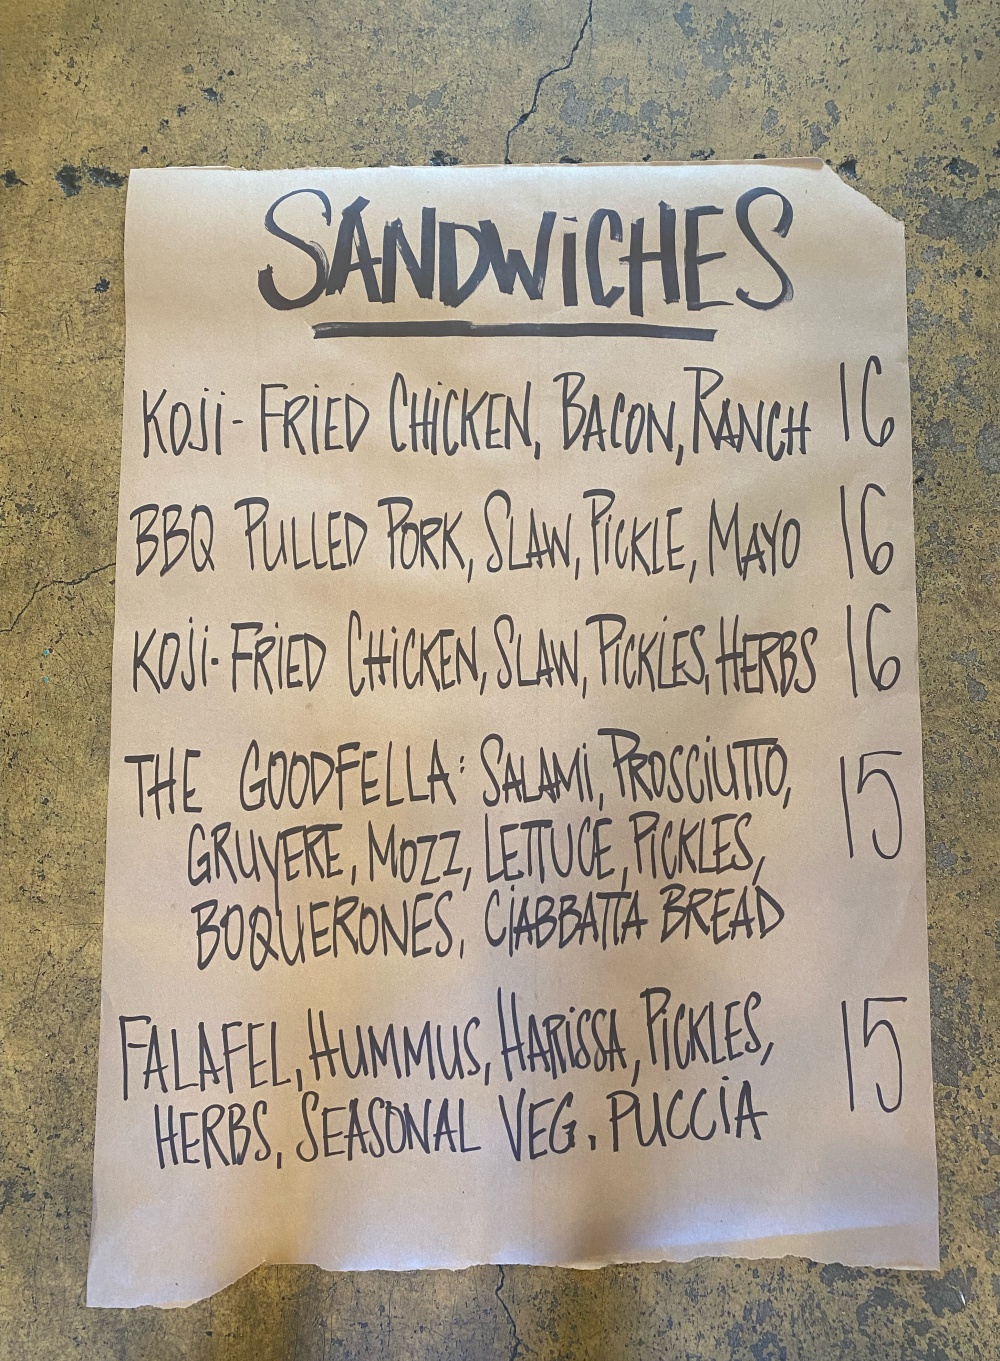 SANDWiCHES
KOJi-FRiED CHiCKEN, BACON, RANCH 16
BBQ PULLED PORK, SLAW, PiCKLE, MAYO 16
KOJi-FRiED CHiCKEN, SLAW, PiCKLES, HERBS 16
THE GOODFELLA: SALAMi, PROSCiUTTO, 15
GRUYERE, MOZZ, LETTUCE, PiCKLES,
BOQUERONES, CiABBATTA BREAD
FALAFEL, HUMMUS, HARiSSA, PiCKLES, 15
HERBS, SEASONAL VEG. PUCCiA